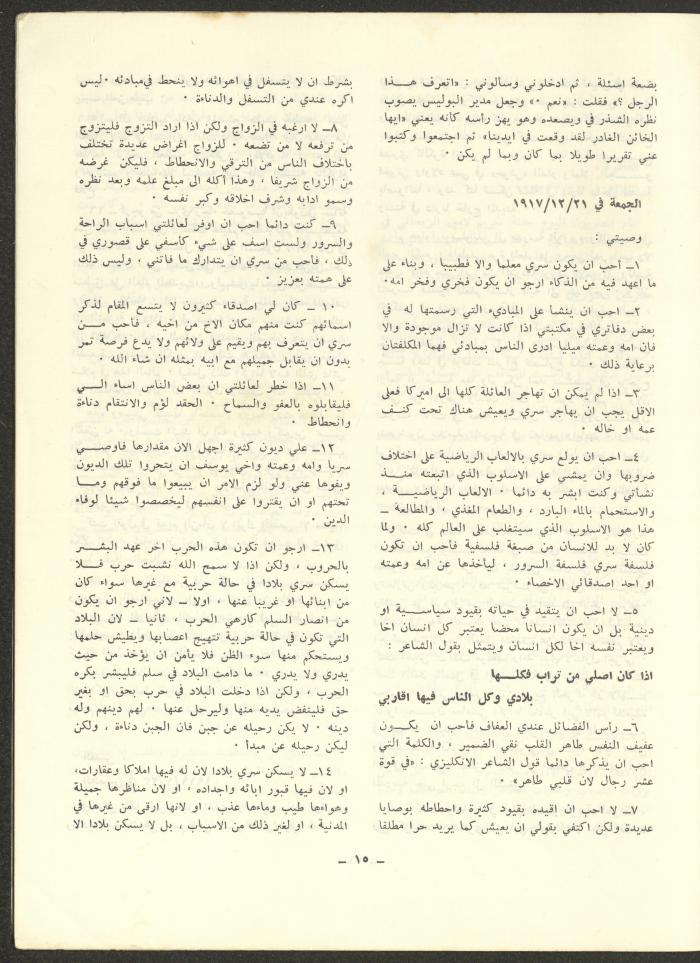 بضعة اسئلة ، ثم ادخلوني وسألوني : «اتعرف هـــذا
الرجل ؟» فقلت : «نعم ٠» وجعل مدير البوليس يصوب
نظره الشذر في ويصعده وهو يهز رأسه كأنه يعني «ايها
الخائن الغادر لقد وقعت في ايدينا» ثم اجتمعوا وكتبوا
عني تقريرا طويلا بما كان وبما لم يكن ٠
الجمعة في ١٩١٧/١٢/٢١
وصيتي :
١ــ أحب ان يكون سري معلما والا فطبيبا ، وبناء على
ما اعهد فيه من الذكاء ارجو ان يكون فخري وفخر امه٠
٢ــ احب ان ينشأ على المباديء التي رسمتها له في
بعض دفاتري في مكتبتي اذا كانت لا تزال موجودة والا
فان امه وعمته ميليا ادرى الناس بمبادئي فهما المكلفتان
برعاية ذلك ٠
٣ــ اذا لم يمكن ان تهاجر العائلة كلها الى اميركا فعلى
الاقل يجب ان يهاجر سري ويعيش هناك تحت كنـــف
عمه او خاله ٠
٤ــ احب ان يولع سري بالالعاب الرياضية على اختلاف
ضروبها وان يمشي على الاسلوب الذي اتبعته منـــذ
نشأتي وكنت ابشر به دائما ٠ الالعاب الرياضيـــة ،
والاستحمام بالماء البارد ، والطعام المغذي ، والمطالعة ــ
هذا هو الاسلوب الذي سيتغلب على العالم كله ٠ ولما
كان لا بد للانسان من صبغة فلسفية فأحب ان تكون
فلسفة سري فلسفة السرور ، ليأخذها عن امه وعمته
او احد اصدقائي الاخصاء ٠
٥ــ لا احب ان يتقيد في حياته بقيود سياسـية او
دينية بل ان يكون انسانا محضا يعتبر كل انسان اخا
ويعتبر نفسه اخا لكل انسان ويتمثل بقول الشاعر :
اذا كان اصلي من تراب فكلـــها
بلادي وكل الناس فيها اقاربي
٦ــ رأس الفضائل عندي العفاف فأحب ان يكــون
عفيف النفس طاهر القلب نقي الضمير ، والكلمة التي
احب ان يذكرها دائما قول الشاعر الانكليزي : «في قوة
عشر رجال لان قلبي طاهر» ٠
٧ــ لا احب ان اقيده بقيود كثيرة واحطاطه بوصايا
عديدة ولكن اكتفي بقولي ان يعيش كما يريد حرا مطلقا
بشرط ان لا يتسفل في اهوائه ولا ينحط في مبادئه ٠ليس
اكره عندي من التسفل والدناءة ٠
٨ــ لا ارغبه في الزواج ولكن اذا اراد التزوج فليتزوج
من ترفعه لا من تضعه ٠ للزواج اغراض عديدة تختلف
باختلاف الناس من الترقي والانحطاط ، فليكن غرضه
من الزواج شريفا ، وهذا أكله الى مبلغ علمه وبعد نظره
وسمو ادابه وشرف اخلاقه وكبر نفسه ٠
٩ــ كنت دائما احب ان اوفر لعائلتي اسباب الراحة
والسرور ولست اسف على شيء كأسفي على قصوري في
ذلك ، فأحب من سري ان يتدارك ما فاتني ، وليس ذلك
على همته بعزيز ٠
١٠ ــ كان لي اصدقاء كثيرون لا يتسع المقام لذكر
اسمائهم كنت منهم مكان الاخ من اخيه ، فأحب مـــن
سري ان يتعرف بهم ويقيم على ولائهم ولا يدع فرصة تمر
بدون ان يقابل جميلهم مع ابيه بمثله ان شاء الله ٠
١١ــ اذا خطر لعائلتي ان بعض الناس اساء الـــي
فليقابلوه بالعفو والسماح ٠ الحقد لؤم والانتقام دناءة
وانحطاط ٠
١٢ــ علي ديون كثيرة اجهل الان مقدارها فاوصـــي
سريا وامه وعمته واخي يوسف ان يتحروا تلك الديون
ويفوها عني ولو لزم الامر ان يبيعوا ما فوقهم ومـــا
تحتهم او ان يقتروا على انفسهم ليخصصوا شيئا لوفاء
الدين ٠
١٣ــ ارجو ان تكون هذه الحرب اخر عهد البشـــر
بالحروب ، ولكن اذا لا سمح الله نشبت حرب فـــلا
يسكن سري بلادا في حالة حربية مع غيرها سواء كان
من ابنائها او غريبا عنها ، اولا ــ لاني ارجو ان يكون
من انصار السلم كارهي الحرب ، ثانيا ــ لان البلاد
التي تكون في حالة حربية تتهيج اعصابها ويطيش حلمها
ويستحكم منها سوء الظن فلا يأمن ان يؤخذ من حيث
يدري ولا يدري ٠ ما دامت البلاد في سلم فليبشر بكره
الحرب ، ولكن اذا دخلت البلاد في حرب بحق او بغير
حق فلينفض يديه منها وليرحل عنها ٠ لهم دينهم وله
دينه ٠ لا يكن رحيله عن جبن فان الجبن دناءة ، ولكن
ليكن رحيله عن مبدأ ٠
١٤ــ لا يسكن سري بلادا لان له فيها املاكا وعقارات،
او لان فيها قبور ابائه واجداده ، او لان مناظرها جميلة
وهواءها طيب وماءها عذب ، او لانها ارقى من غيرها في
المدنية ، او لغير ذلك من الاسباب ، بل لا يسكن بلادا الا
ــ ١٥ ــ